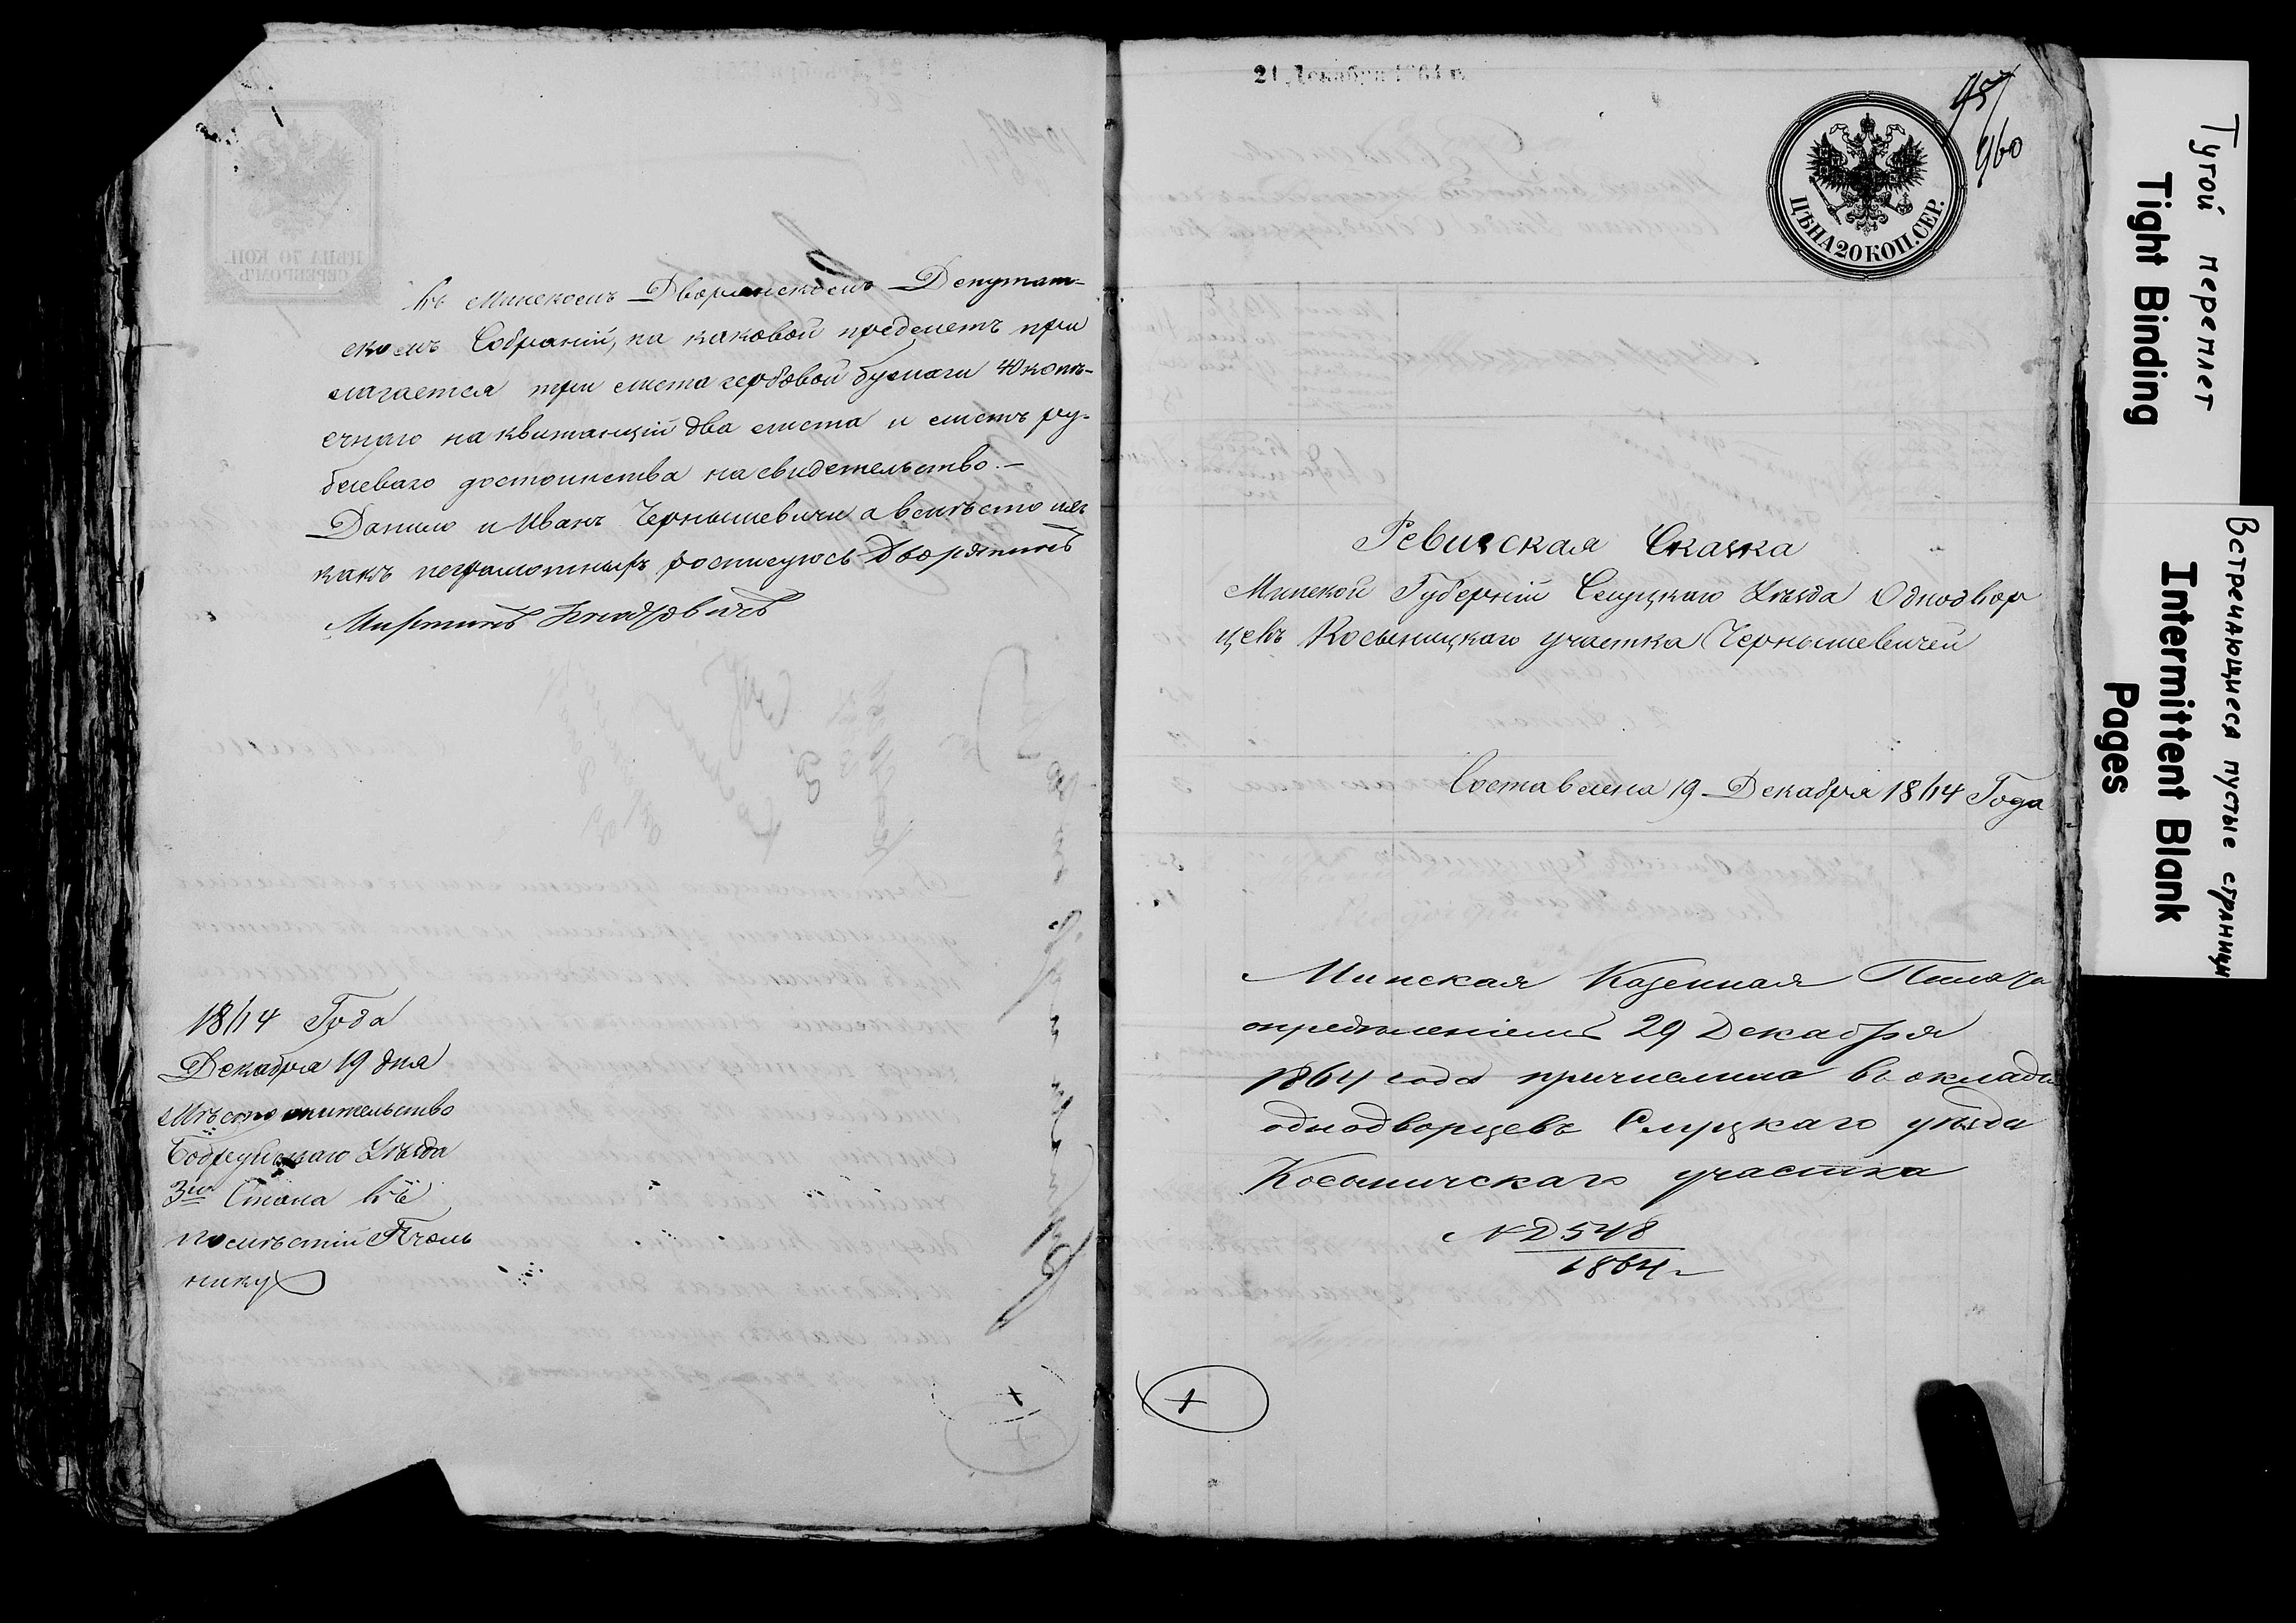 въ Минскомъ Дворянскомъ Депутат-
скомъ Собраніи, на каковой предметъ при
лагается три листа гербовой бумаги 40 копѣ-
ечнаго на квитанціи два листа и листъ ру-
блеваго достоинства на свидетельство.—
Данило и Иванъ Чернышевичи а вмѣсто ихъ
какъ неграмотныхъ росписуюсь Дворянинъ
Мартинъ
18 64 Года
Декабря 19 дня
Мѣсто жительство
Бобруйскаго Уѣзда
3го Стана въ
помѣстіи Пчоль
нику
21 Декабря 1864 г.
95
960
ЦѢНА 20 КОП. СЕР.
Ревизская Сказка
Минской Губерніи Слуцкаго Уѣзда Однодвор
цевъ Косыницкаго участка Чернышевичей
Составлена 19 Декабря 18 64 Года
Минская Казенная Палата
опредѣленіемъ 29 Декабря
1864 года причислила въ окладъ
однодворцевъ Слуцкаго уѣзда
Косыничскаго участка
№ Д 548
1864
+
Тугой переплет
Tight Binding
Встречающиеся пустые страницы
Intermittent Blank
Pages